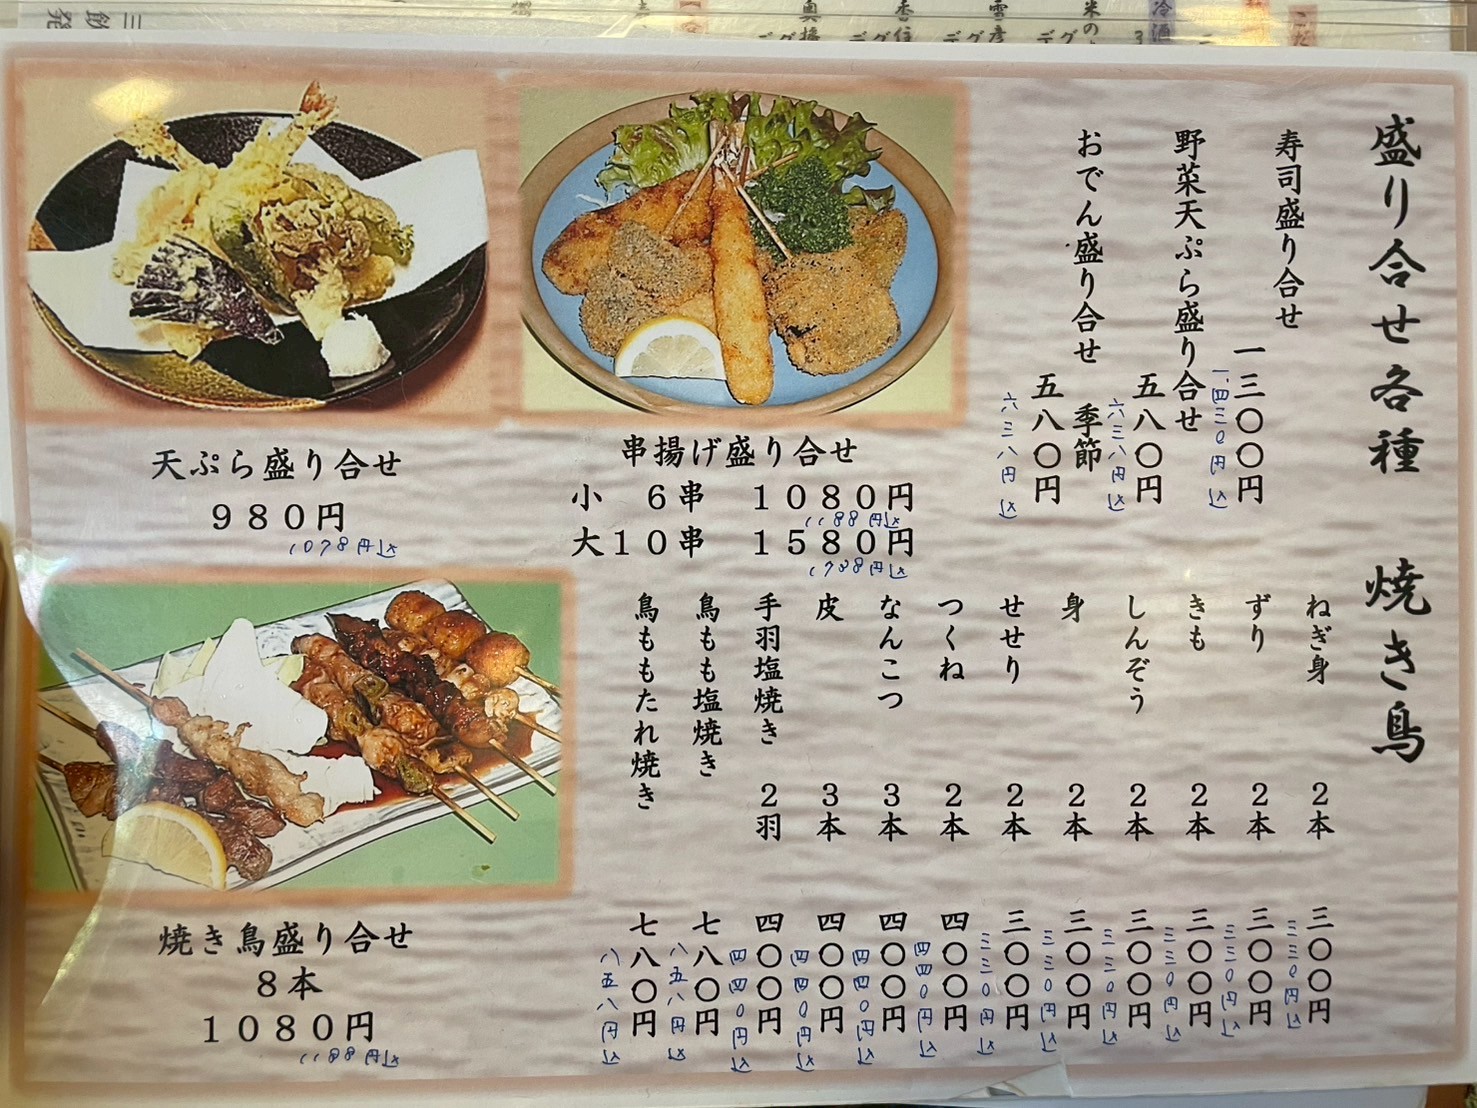 盛り合せ各種
寿司盛り合せ
一三〇〇円
一、四三〇円込
野菜天ぷら盛り合せ
五八〇円
六三八円込
おでん盛り合せ
季節
五八〇円
六三八円込
天ぷら盛り合せ
980円
1078円込
串揚げ盛り合せ
小 6串 1080円
1188円込
大10串 1580円
1738円込
焼き鳥
ねぎ身 2本 三〇〇円
三三〇円込
ずり 2本 三〇〇円
三三〇円込
きも 2本 三〇〇円
三三〇円込
しんぞう 2本 三〇〇円
三三〇円込
身 2本 三〇〇円
三三〇円込
せせり 2本 三〇〇円
三三〇円込
つくね 2本 四〇〇円
四四〇円込
なんこつ 3本 四〇〇円
四四〇円込
皮 3本 四〇〇円
四四〇円込
手羽塩焼き 2羽 四〇〇円
四四〇円込
鳥もも塩焼き 七八〇円
八五八円込
鳥ももたれ焼き 七八〇円
八五八円込
焼き鳥盛り合せ
8本
1080円
1188円込